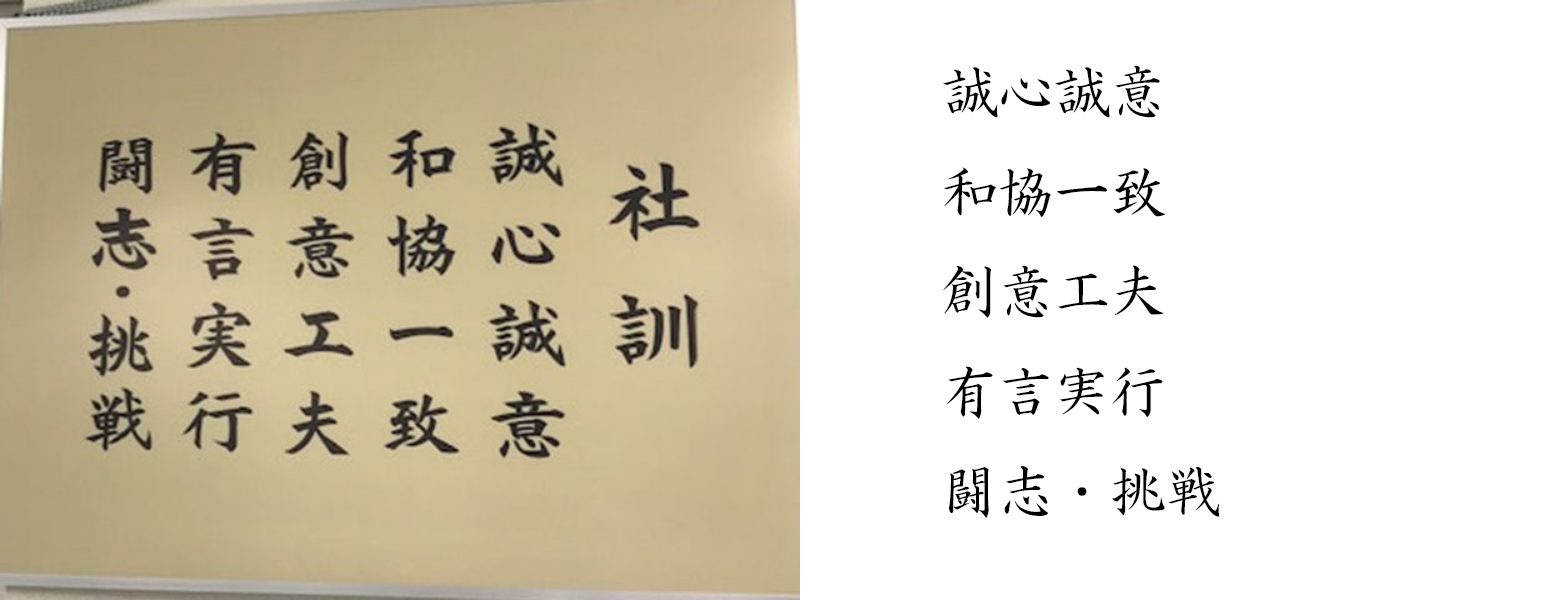 社訓
誠心誠意
和協一致
創意工夫
有言実行
闘志・挑戦
誠心誠意
和協一致
創意工夫
有言実行
闘志・挑戦